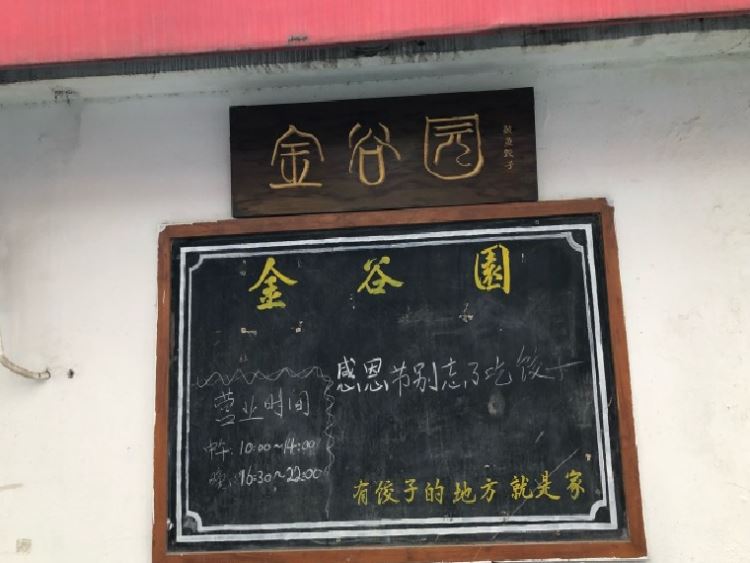 金谷园
饺子
金谷園
感恩节别忘了吃饺子
营业时间
中午:10:00~14:00
晚:16:30~22:00
有饺子的地方就是家